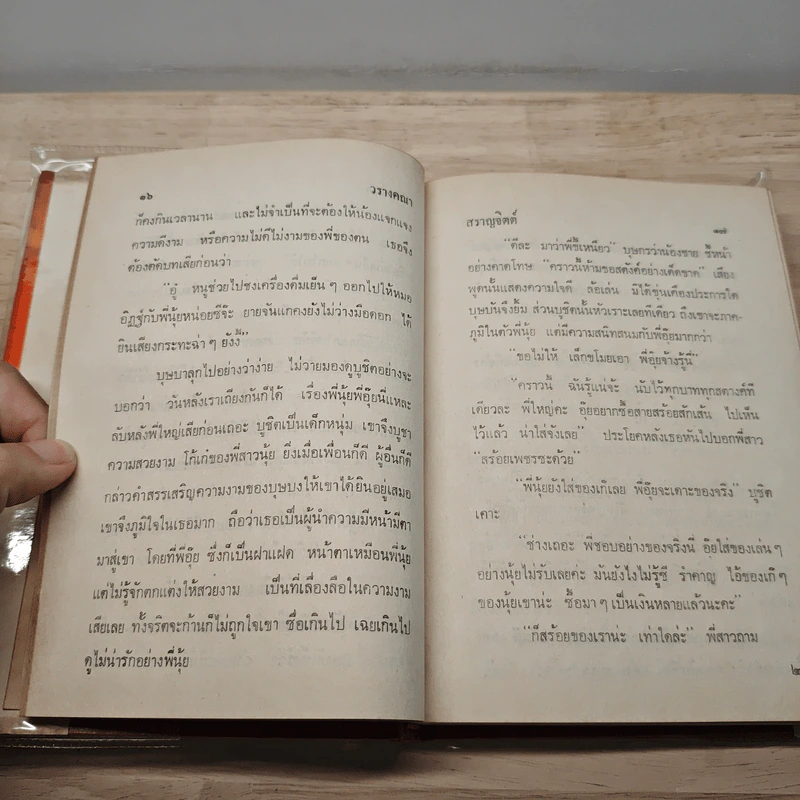 ๑๖ วรางคณา
ก็คงกินเวลานาน และไม่จำเป็นที่จะต้องให้น้องแจกแจง
ความดีงาม หรือความไม่ดีไม่งามของพี่ของตน เธอจึง
ต้องตัดบทเสียก่อนว่า
"อู๋ หนูช่วยไปชงเครื่องดื่มเย็นๆ ออกไปให้หมอ
อิฏฐ์กับพี่นุ้ยหน่อยซีจ๊ะ ยายจันแกคงยังไม่ว่างมือดอก ได้
ยินเสียงกระทะฉ่าๆ ยังงี้"
บุษบาลุกไปอย่างว่าง่าย ไม่วายมองดูบูชิตอย่างจะ
บอกว่า วันหลังเราเถียงกันก็ได้ เรื่องพี่นุ้ยพี่อุ๊ยนี่แหละ
ลับหลังพี่ใหญ่เสียก่อนเถอะ บูชิตเป็นเด็กหนุ่ม เขาจึงบูชา
ความสวยงาม โก้เก๋ของพี่สาวนุ้ย ยิ่งเมื่อเพื่อนก็ดี ผู้อื่นก็ดี
กล่าวคำสรรเสริญความงามของบุษบงให้เขาได้ยินอยู่เสมอ
เขาจึงภูมิใจในเธอมาก ถือว่าเธอเป็นผู้นำความมีหน้ามีตา
มาสู่เขา โดยที่พี่อุ๊ย ซึ่งก็เป็นฝาแฝด หน้าตาเหมือนพี่นุ้ย
แต่ไม่รู้จักตกแต่งให้สวยงาม เป็นที่เลื่องลือในความงาม
เสียเลย ทั้งจริตจะก้านก็ไม่ถูกใจเขา ซื่อเกินไป เฉยเกินไป
ดูไม่น่ารักอย่างพี่นุ้ย
สราญจิตต์ ๑๗
"ดีละ มาว่าพี่ขี้เหนียว" บุษกรว่าน้องชาย ชี้หน้า
อย่างคาดโทษ "คราวนี้ห้ามขอสตังค์อย่างเด็ดขาด" เสียง
พูดนั้นแสดงความใจดี ล้อเล่น มิได้ขุ่นเคืองประการใด
บุษบันจึงยิ้ม ส่วนบูชิตนั้นหัวเราะเลยทีเดียว ถึงเขาจะภาค-
ภูมิในตัวพี่นุ้ย แต่มีความสนิทสนมกับพี่อุ๊ยมากกว่า
"ขอไม่ให้ เล็กขโมยเอา พี่อุ๊ยจ้างรู้นี่"
"คราวนี้ ฉันรู้แน่จ้ะ นับไว้ทุกบาททุกสตางค์ที
เดียวละ พี่ใหญ่คะ อุ๊ยอยากซื้อสายสร้อยสักเส้น ไปเห็น
ไว้แล้ว น่าใส่จังเลย" ประโยคหลังเธอหันไปบอกพี่สาว
"สร้อยเพชรซะด้วย"
"พี่นุ้ยยังใส่ของเก๊เลย พี่อุ๊ยจะเคาะของจริง" บูชิต
เคาะ
"ช่างเถอะ พี่ชอบอย่างของจริงนี่ อุ๊ยใส่ของเล่นๆ
อย่างนุ้ยไม่รับเลยค่ะ มันยังไงไม่รู้ซี รำคาญ ไอ้ของเก๊ๆ
ของนุ้ยเขาน่ะ ซื้อมาๆ เป็นเงินหลายแล้วนะคะ"
"ก็สร้อยของเราน่ะ เท่าใดล่ะ" พี่สาวถาม